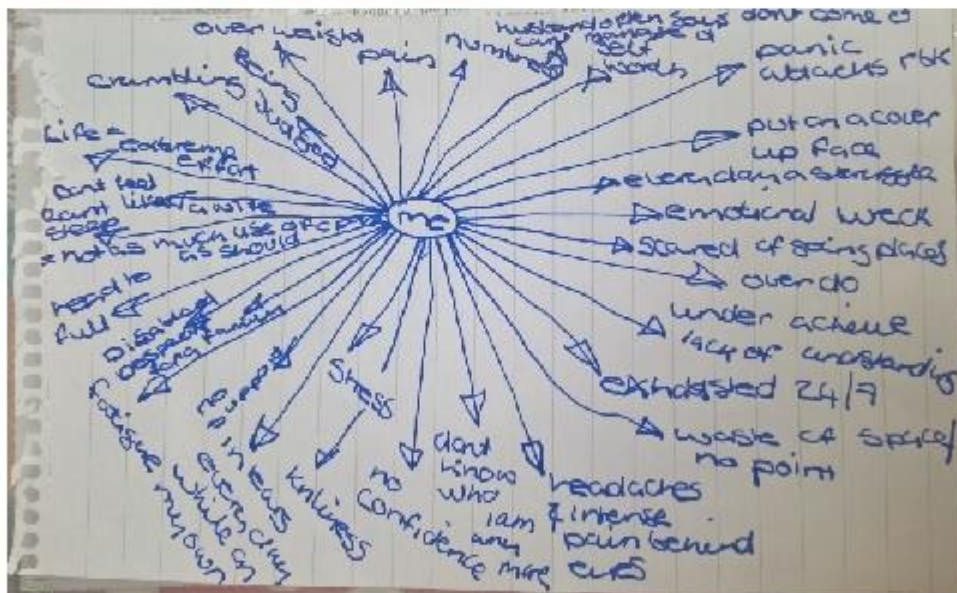 over weight
pain
numbness
husband often says dont come if
cant manage it
self
words
panic
attacks risk
put on a cover
up face
every day a struggle
emotional wreck
scared of going places
over do
under achieve
lack of understanding
exhausted 24/7
waste of space/
no point
headaches
& intense
pain behind
eyes
dont
know
who
I am
any
more
no
confidence
stress
lonliness
no support
in tears
every day
while on
my own
fatigue
head to
full
not as much use of
as should
dont feel
like a wife
cant
sleep
Life =
extreme
effort
crumbling
being
judged
me